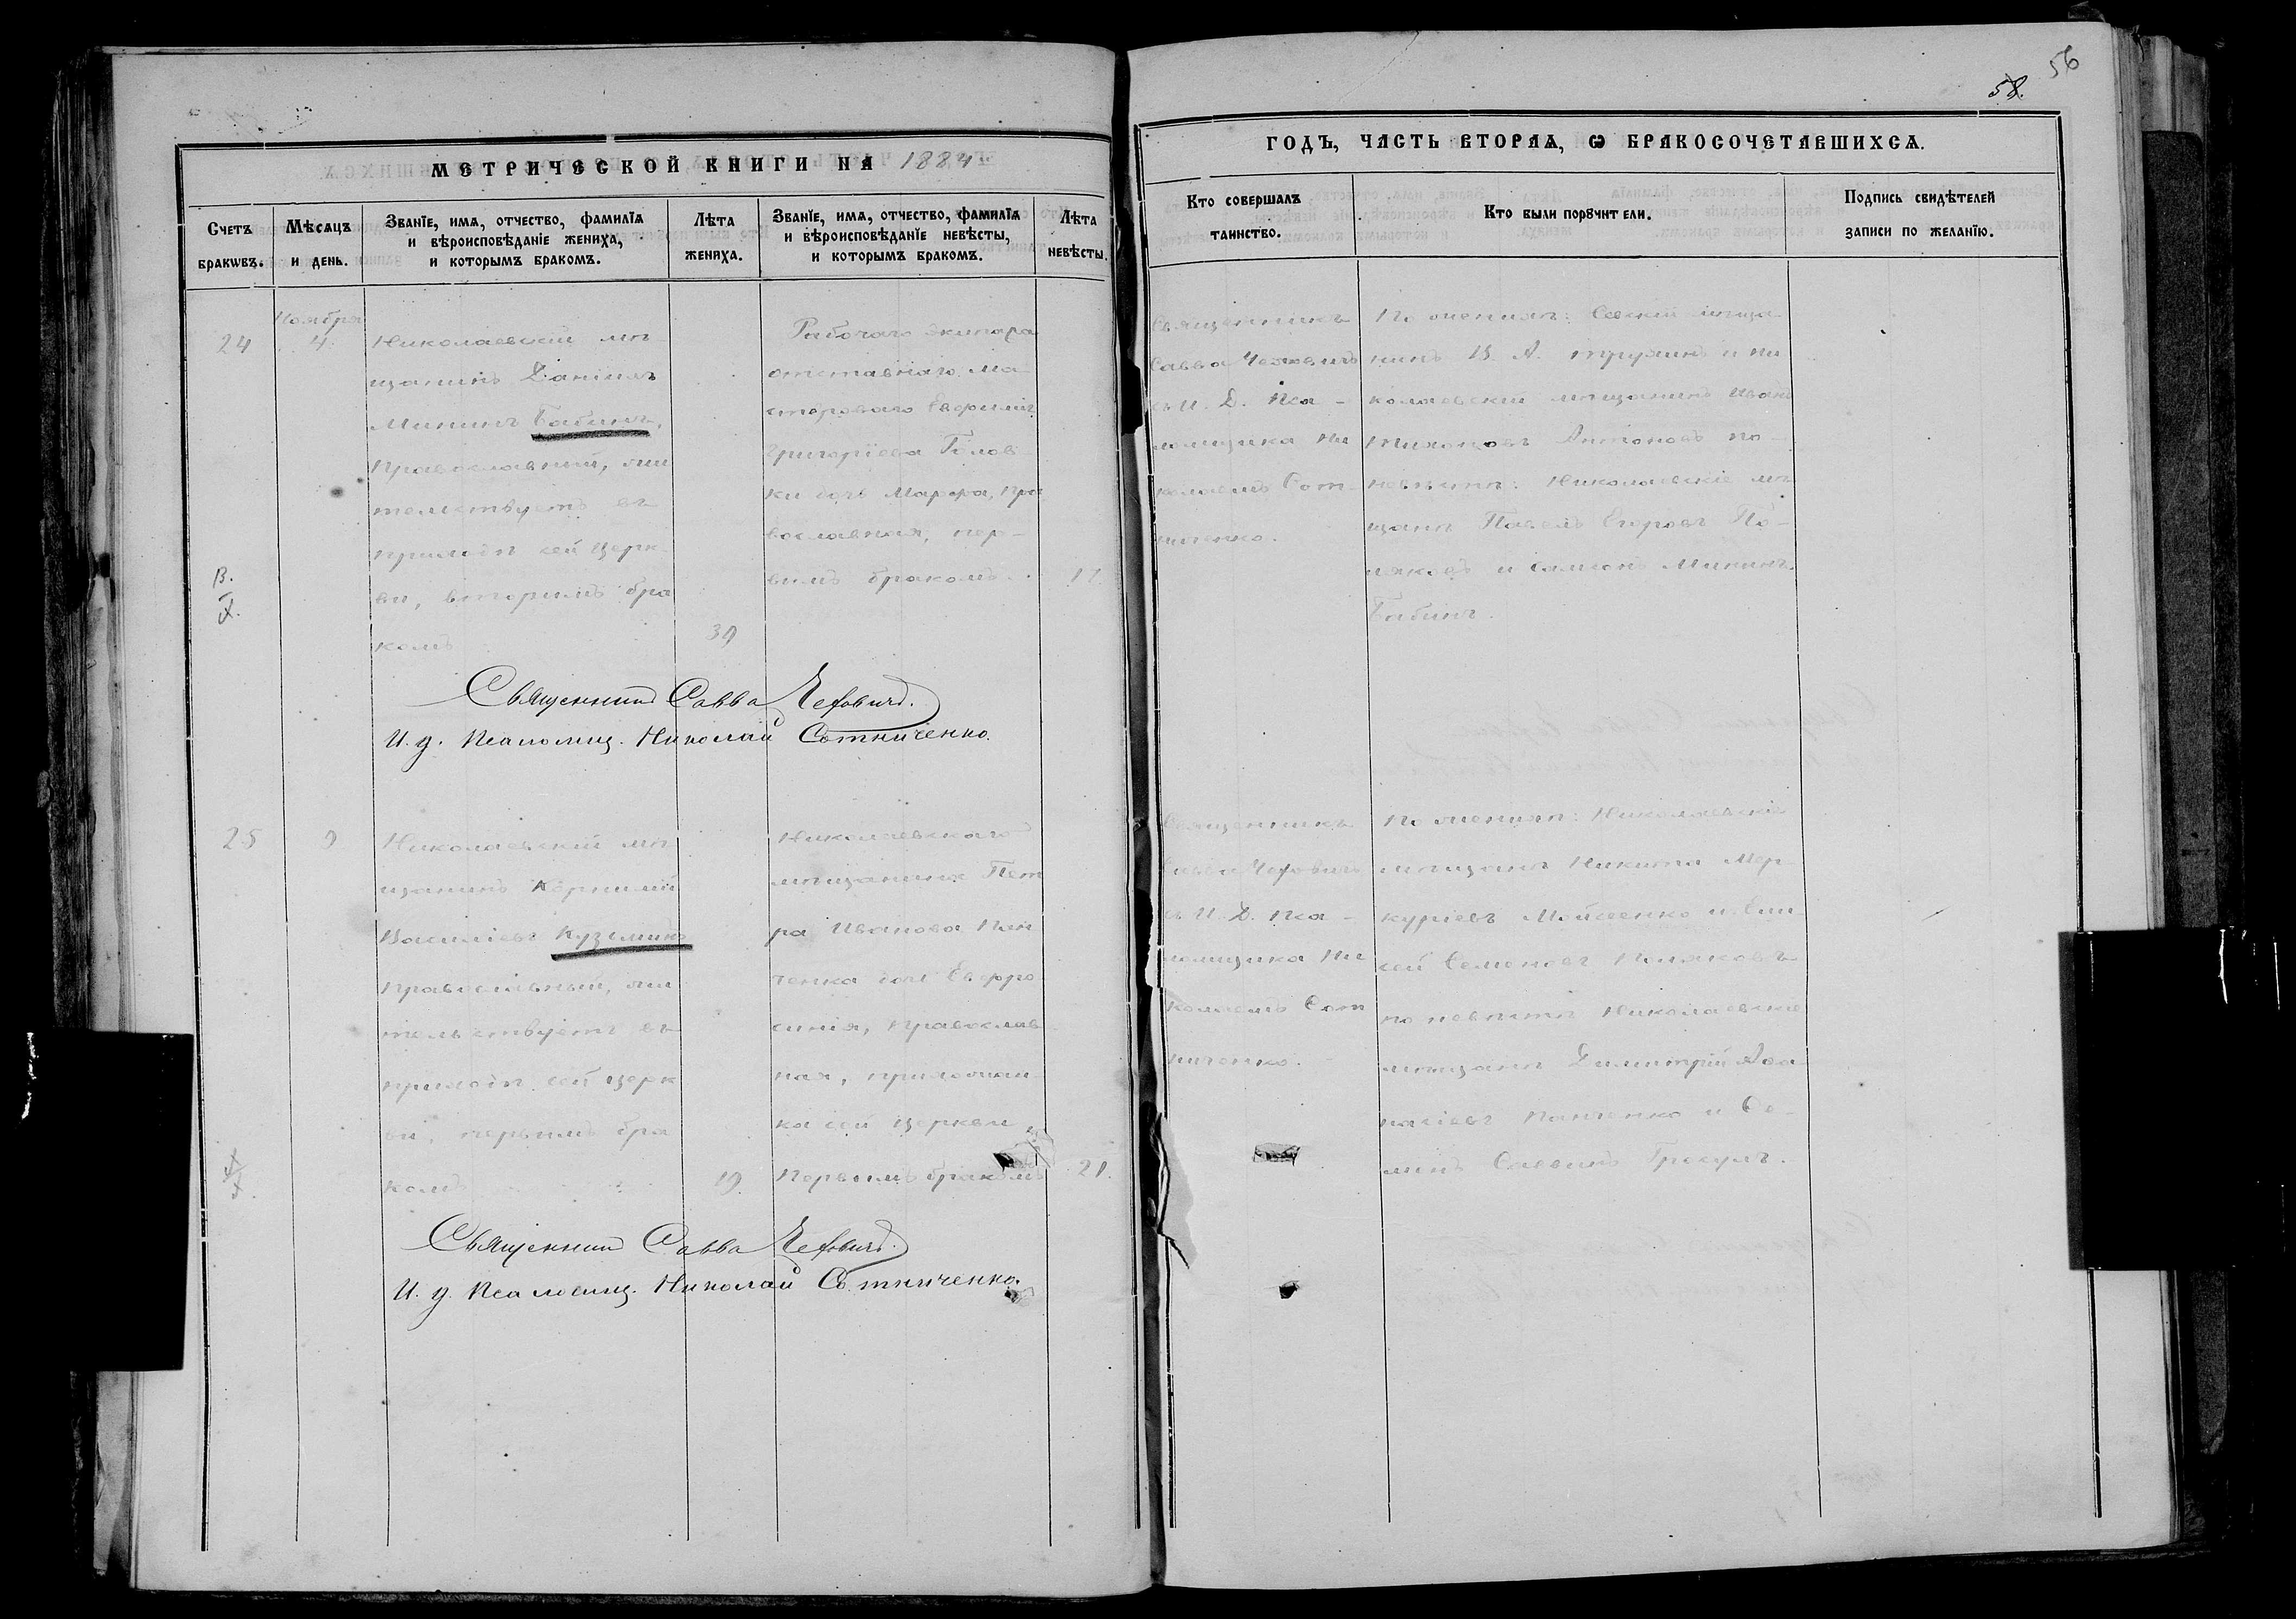 56
58.
МЕТРИЧЕСКОЙ КНИГИ НА 1884
ГОДЪ, ЧАСТЬ ВТОРАЯ, Ѡ БРАКОСОЧЕТАВШИХСЯ.
Счетъ бракѡвъ.
Мѣсяцъ и день.
Званїе, имя, отчество, фамилїя
и вѣроисповѣданїе жениха,
и которымъ бракомъ.
Лѣта жениха.
Званїе, имя, отчество, фамилїя
и вѣроисповѣданїе невѣсты,
и которымъ бракомъ.
Лѣта невѣсты.
Кто совершалъ таинство.
Кто были порꙋчители.
Подпись свидѣтелей
записи по желанїю.
24
Ноября
4.
Николаевскій мѣ-
щанинъ Даніилъ
Мининъ Бабинъ,
Православный, жи
тельствуетъ въ
приходѣ сей церк
ви, вторымъ бра
комъ
39
Рабочаго экипажа
отставнаго ма-
стероваго Евфимія
Григоріева Голов
ки дочь Марфа, пра
вославная, пер-
вымъ бракомъ.
17.
Священникъ
Савва Чехович
съ И. Д. Пса-
ломщика Ни
колаемъ Сот-
ниченко.
По женихѣ:
нинъ В. А. и Ни
колаевскій мѣщанинъ Иванъ
Антоновъ по
невѣстѣ: Николаевскіе мѣ
щане Павелъ Егоровъ По-
ляковъ и Самсонъ Мининъ
Бабинъ.
Священник Савва Чехович.
И. д. Псаломщ. Николай Сотниченко.
25
9
Николаевскій мѣ
щанинъ Корнилій
Василіевъ Кузьминъ
Православный, жи
тельствуетъ въ
приходѣ сей церк
ви, первымъ бра
комъ
19.
Николаевскаго
мѣщанина Пет
ра Иванова Пан
ченка дочь Евфро
синія, Православ
ная, прихожан
ка сей церкви
Первымъ бракомъ
21.
Священникъ
Савва Чехович
съ И. Д. Пса-
ломщика Ни
колаемъ Сот
ниченко.
По женихѣ: Николаевскіе
мѣщане Никита Мер-
куріевъ Мойсеенко и Ели
сей Семеновъ Поляковъ
по невѣстѣ Николаевскіе
мѣщане Димитрій Аѳа
насіевъ Панченко и Ѳо-
Саввинъ
Священник Савва Чехович.
И. д. Псаломщ. Николай Сотниченко.